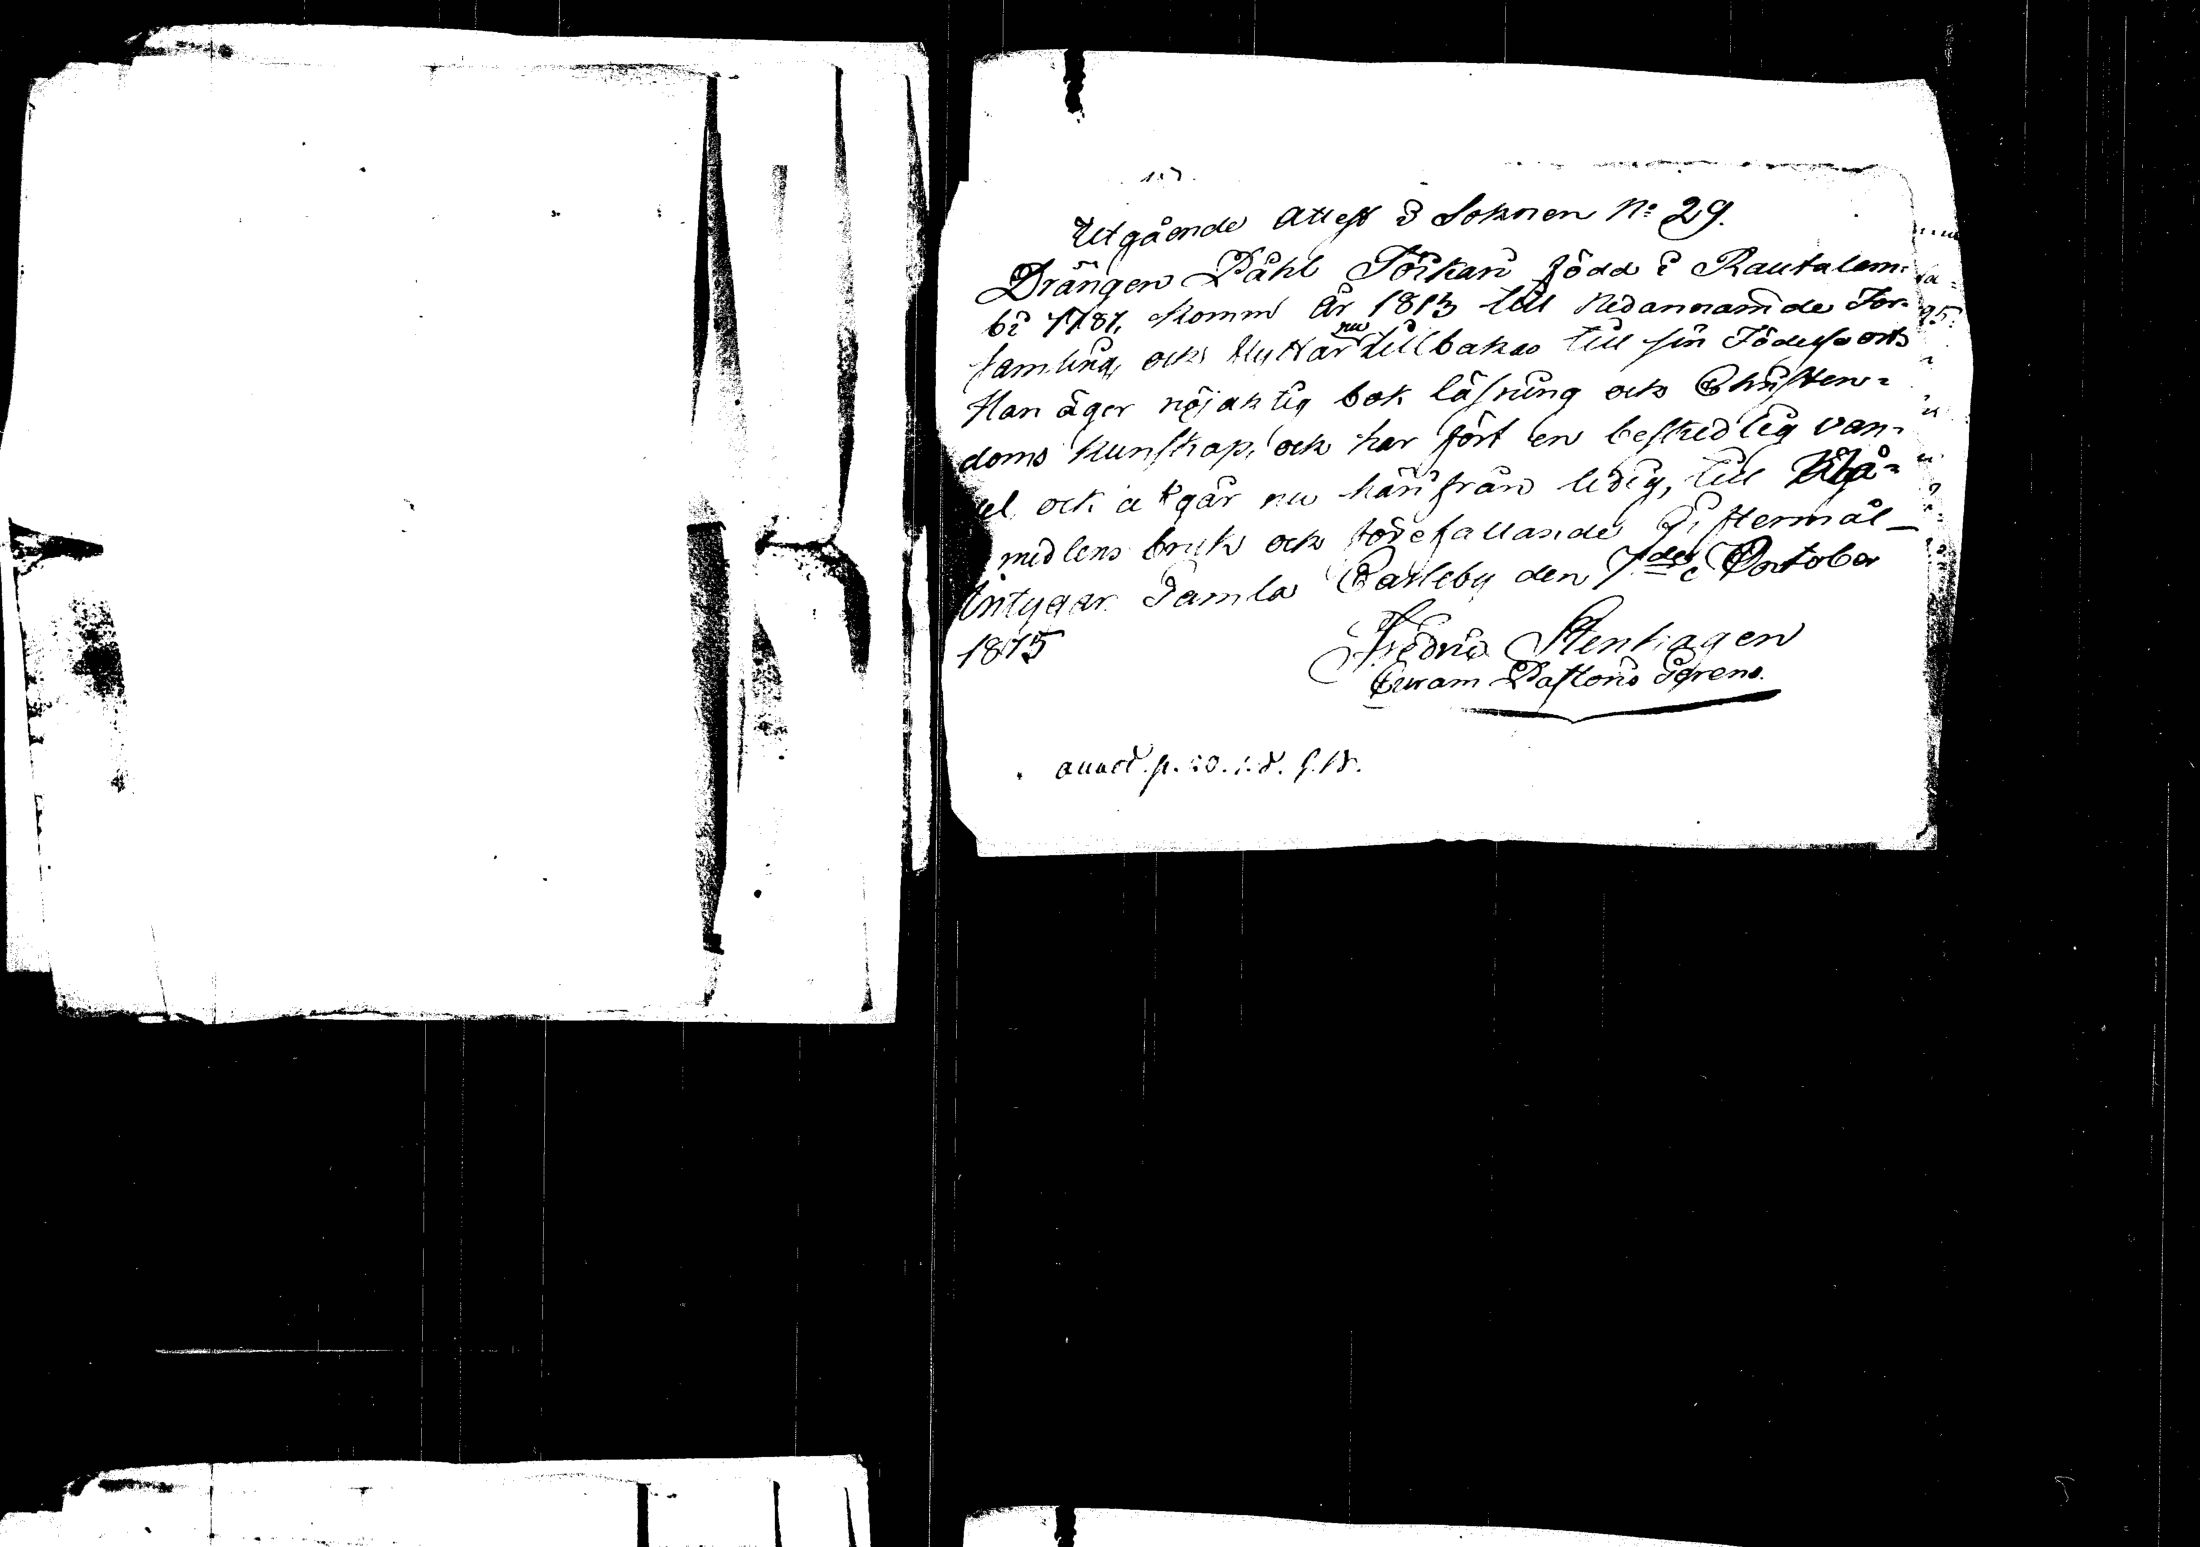 Utgående Attest i Soknen No: 29.
Drängen Påhl Törkan född i Rautalam-
bi 1787, komm år 1813 till Nedannamde För-
samling, och fluttar nu tillbakas till sin Födelse ort
Han äger nöjaktig bok läsning och Christen-
doms kunskap, och har fört en beskedlig van-
del och afgår nu härifrån ledig, till Nåd-
medlens bruk och förefallande Giftermål_
Intygar. Gamla Carleby den 7de October
1815
Fredric Stenhagen
Curam Pastoris Gerens.
annot. p.